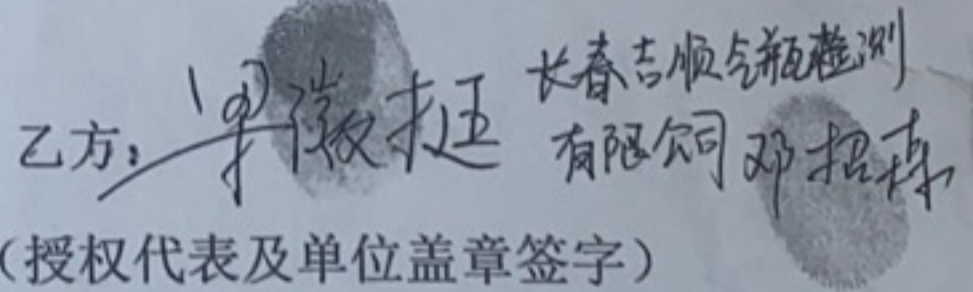 乙方：单微挺 长春吉顺气瓶检测
有限公司 邓招栋
（授权代表及单位盖章签字）